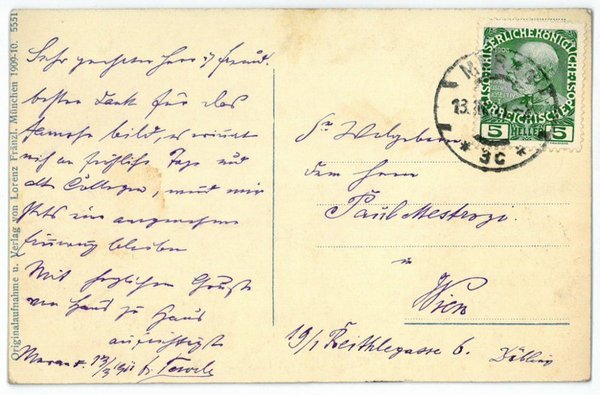 Originalaufnahme u. Verlag von Lorenz Fränzl, München 1909-10. 5551
Sehr geehrter Herr u Freund.
besten Dank für das
famose Bild, es erinnert
mich an fröhliche Tage und
alte Collegen, wird mir
stets in angenehmer
Erinnerung bleiben
Mit herzlichem Gruß
von Haus zu Haus
aufrichtigst
Meran
KAISERLICHE KÖNIGLICHE
ÖSTERREICHISCHE
5 HELLER 5
13.
* 3c *
Sr Wolgeboren
dem Herrn
Paul Mestrozi
in
Wien
19/1 Reithlegasse 6. Döbling